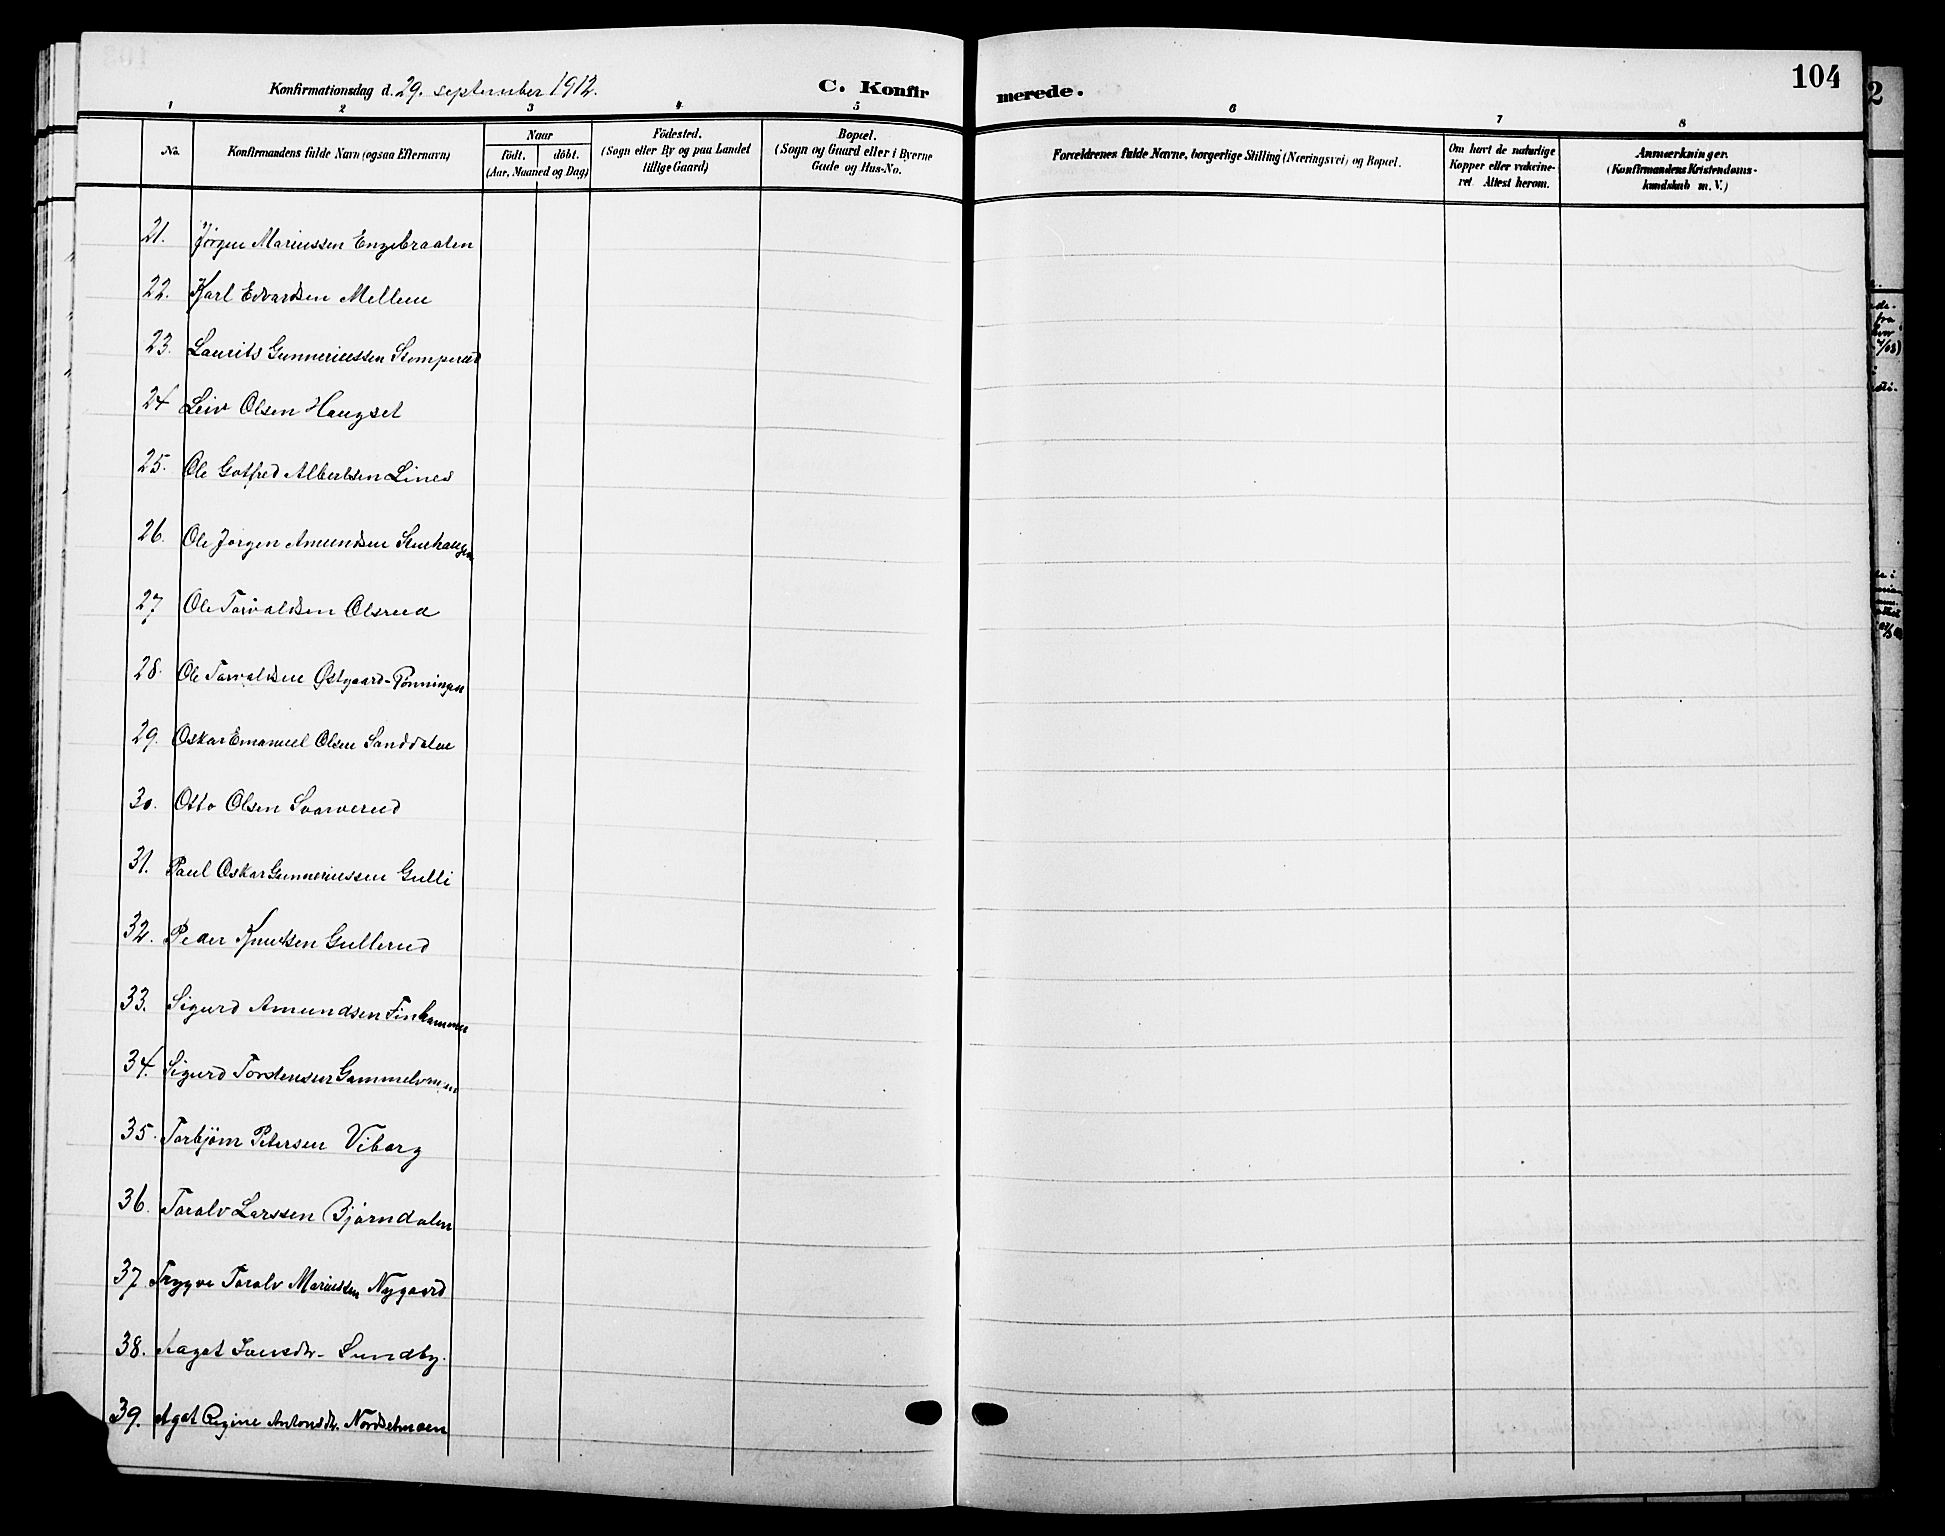 104
Konfirmationsdag d. 29. september 1912.
C. Konfirmerede.
1 2 3 4 5 6 7 8
No.
Konfirmandens fulde Navn (ogsaa Efternavn)
Naar
födt. döbt.
(Aar, Maaned og Dag)
Födested.
(Sogn eller By og paa Landet
tillige Gaard)
Bopæl.
(Sogn og Gaard eller i Byerne
Gade og Hus-No.
Forældrenes fulde Navne, borgerlige Stilling (Næringsvei) og Bopæl.
Om havt de naturlige
Kopper eller vakcine-
ret. Attest herom.
Anmærkninger.
(Konfirmandens Kristendoms-
kundskab m. V.)
21. Jørgen Mariussen Engebraaten
22. Karl Edvardsen Mellem
23. Laurits Gunneriussen Stomperud
24 Leiv Olsen Haugset
25. Ole Gotfred Albertsen Lines
26. Ole Jørgen Amundsen
27 Ole Torvaldsen Olsrud
28. Ole Torvaldsen Østgaard-Rønningen
29. Oskar Emanuel Olsen Sanddalen
30. Otto Olsen Svarverud
31. Paul Oskar Gunneriussen Gulli
32. Peder Knudsen Gullerud
33. Sigurd Amundsen Finhammer
34. Sigurd Torstensen Gammelmoen
35. Torbjørn Petersen Viborg
36. Toralv Larssen Bjørndalen
37 Trygve Toralv Mariussen Nygaard
38. Aagot Iversdtr. Sundby.
39. Agot Regine Antonsdtr. Nordsetmoen